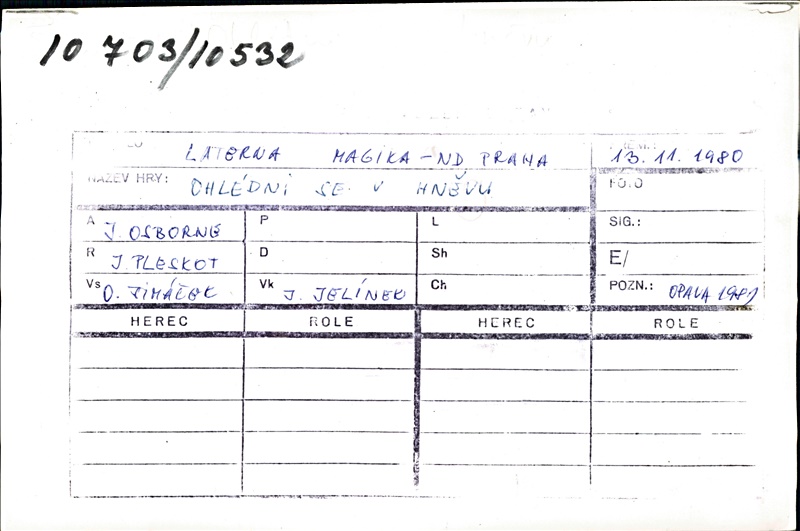 10 703/10532
LATERNA MAGIKA - ND PRAHA 13.11.1980
NÁZEV HRY: OHLÉDNI SE V HNĚVU FOTO
A J. OSBORNE P L SIG.:
R J. PLESKOT D Sh E/
Vs O. ŠIMÁČEK Vk J. JELÍNEK Ch POZN.: OPAVA 1981
HEREC ROLE HEREC ROLE